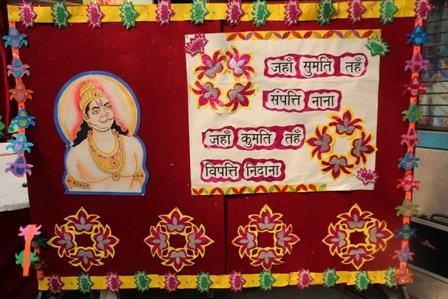 जहाँ सुमति तहँ
संपत्ति नाना
जहाँ कुमति तहँ
विपत्ति निदाना